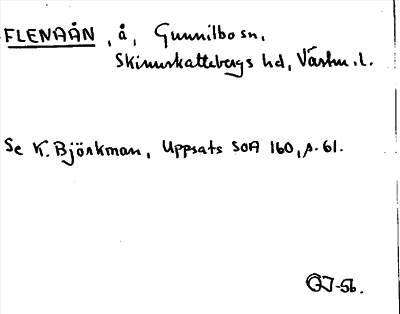 FLENAÅN, å, Gunnilbo sn,
Skinnskattebergs hd, Västm. l.
Se K. Björkman, Uppsats SOA 160, s. 61.
GJ-56.